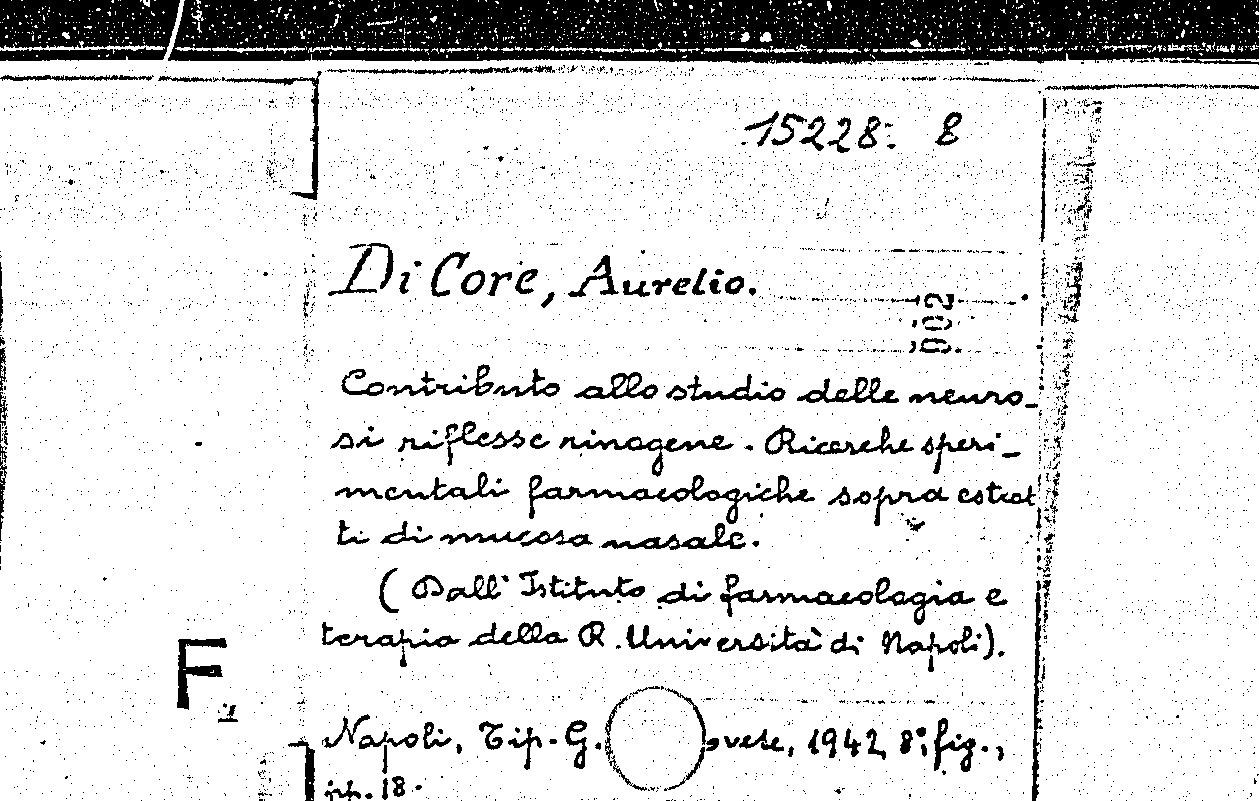 15228. 8
Di Core, Aurelio.
002
Contributo allo studio delle neuro-
si riflesse rinogene. Ricerche speri-
mentali farmacologiche sopra estrat
ti di mucosa nasale.
(Dall'Istituto di farmacologia e
terapia della R. Università di Napoli).
F
Napoli, Tip. G. ovese, 1942, 8°, fig.,
pp. 18.